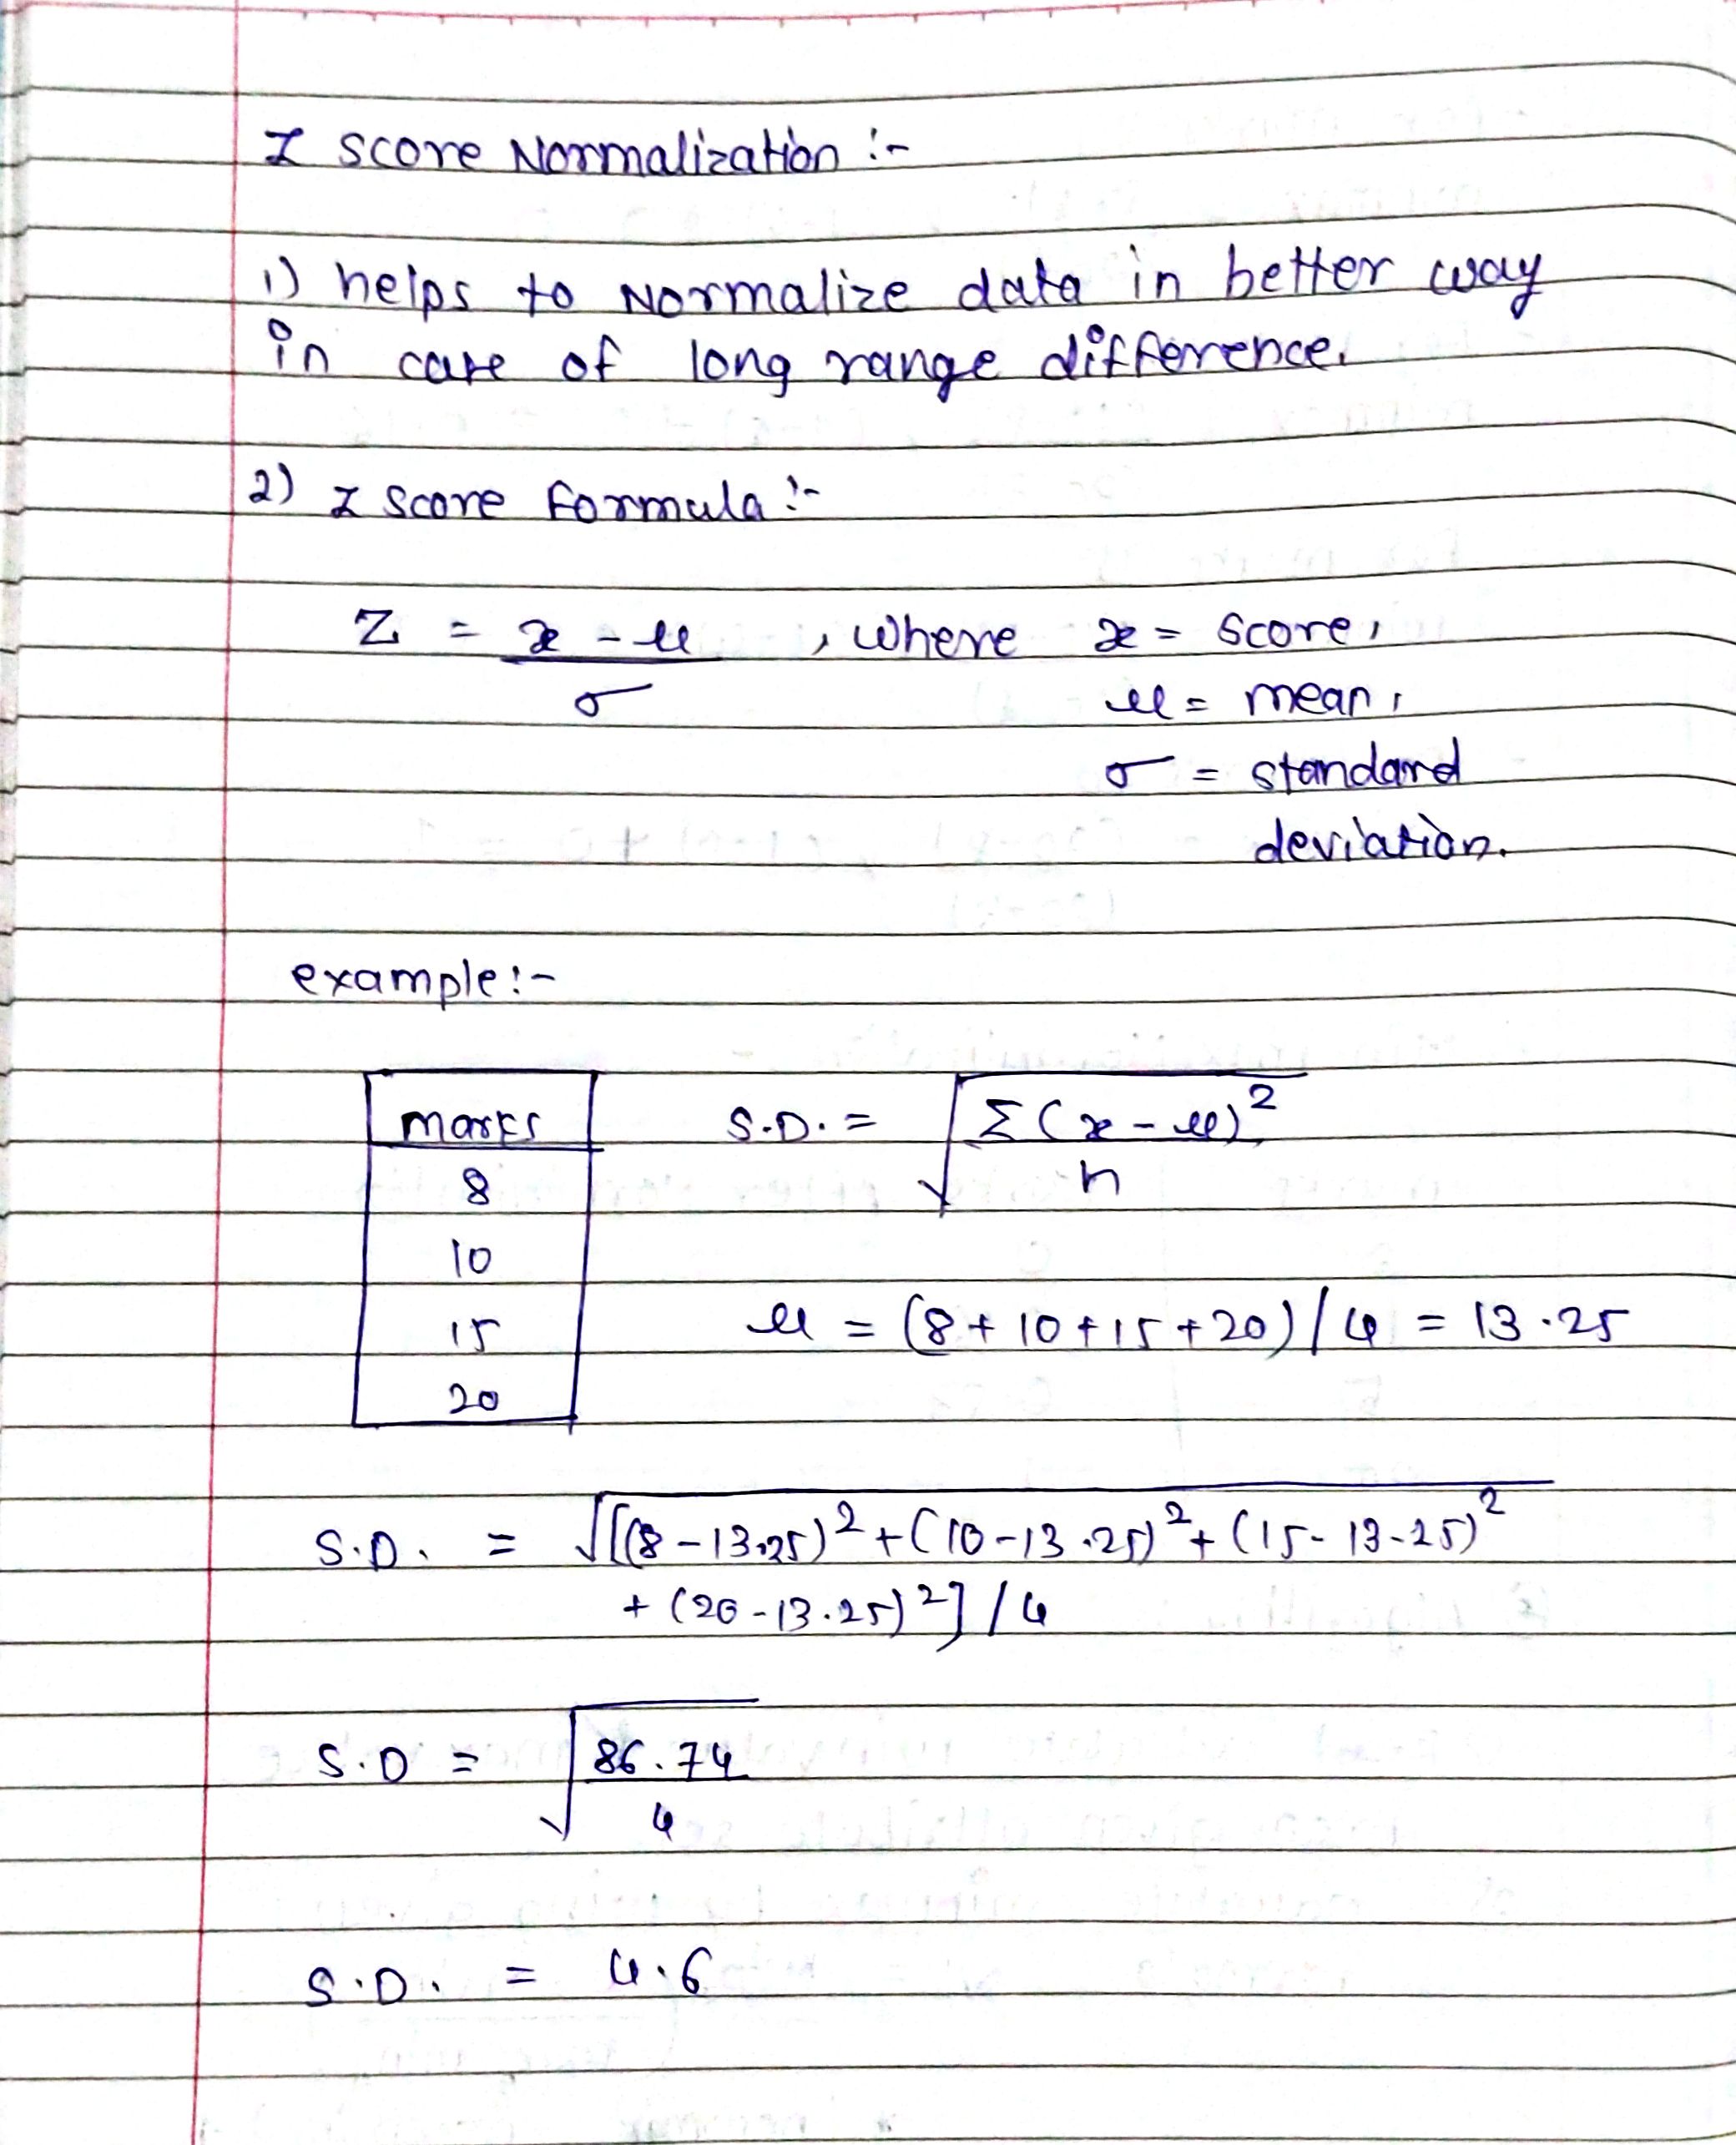 Z score Normalization :-
1) helps to Normalize data in better way
in case of long range difference.
2) Z score formula :-
Z = x - μ , where x = score,
σ
μ = mean,
σ = standard
deviation.
example :-
marks
8
10
15
20
S.D. = √ Σ(x - μ)²
n
μ = (8 + 10 + 15 + 20) / 4 = 13.25
S.D. = √[(8 - 13.25)² + (10 - 13.25)² + (15 - 13.25)²
+ (20 - 13.25)²] / 4
S.D = √ 86.74
4
S.D. = 4.6